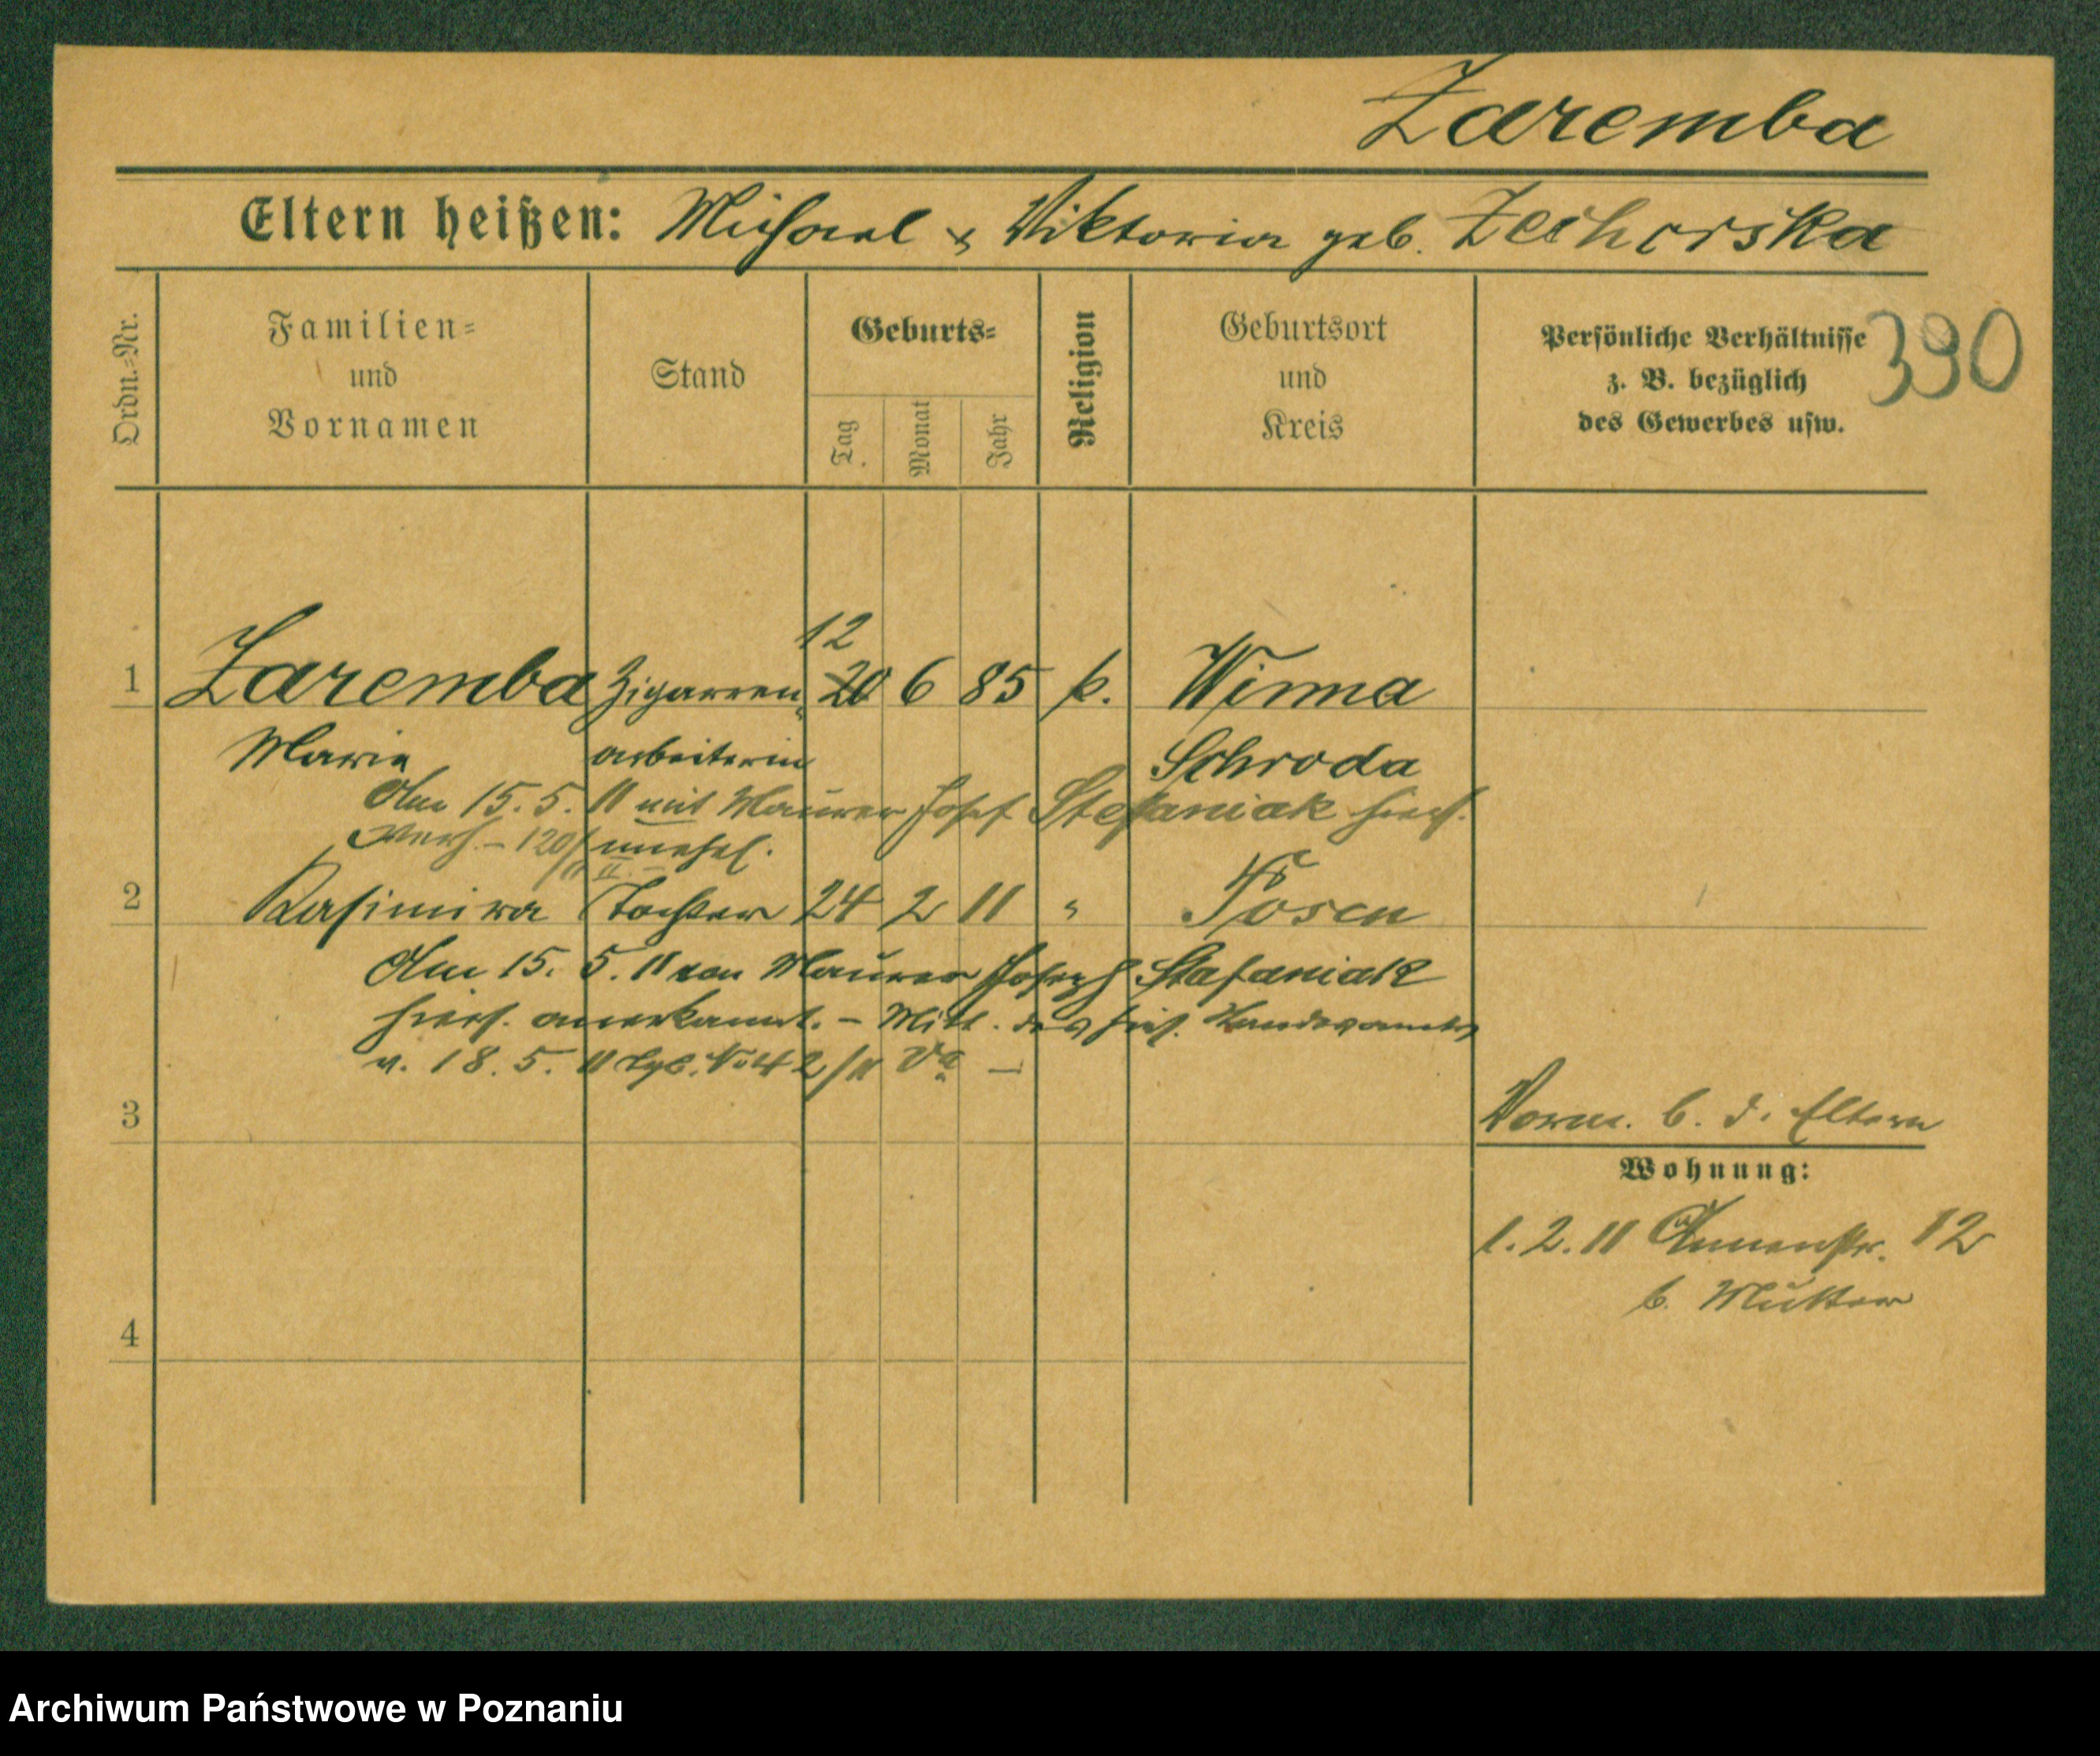 Zaremba
Eltern heißen: Michael & Viktoria geb. Zechorska
Ordn.=Nr.
Familien=
und
Vornamen
Stand
Geburts=
Tag
Monat
Jahr
Religion
Geburtsort
und
Kreis
Persönliche Verhältnisse
z. B. bezüglich
des Gewerbes usw.
390
12
1 Zaremba Zigarren 20 6 85 k. Winna
Marie arbeiterin Schroda
Am 15. 5. 11 mit Maurer Josef Stefaniak hier
verh. – 120/11 II
unehel.
2 Kasimira Tochter 24 2 11 " Posen
Am 15. 5. 11 von Maurer Joseph Stefaniak
hiers. anerkannt. – Mitt. des hies. Standesamts
v. 18. 5. 11 Tgb. No 42/11 Va –
3
Vorm. b. d. Eltern
Wohnung:
1. 2. 11 Annenstr. 12
b. Mutter
4
Archiwum Państwowe w Poznaniu